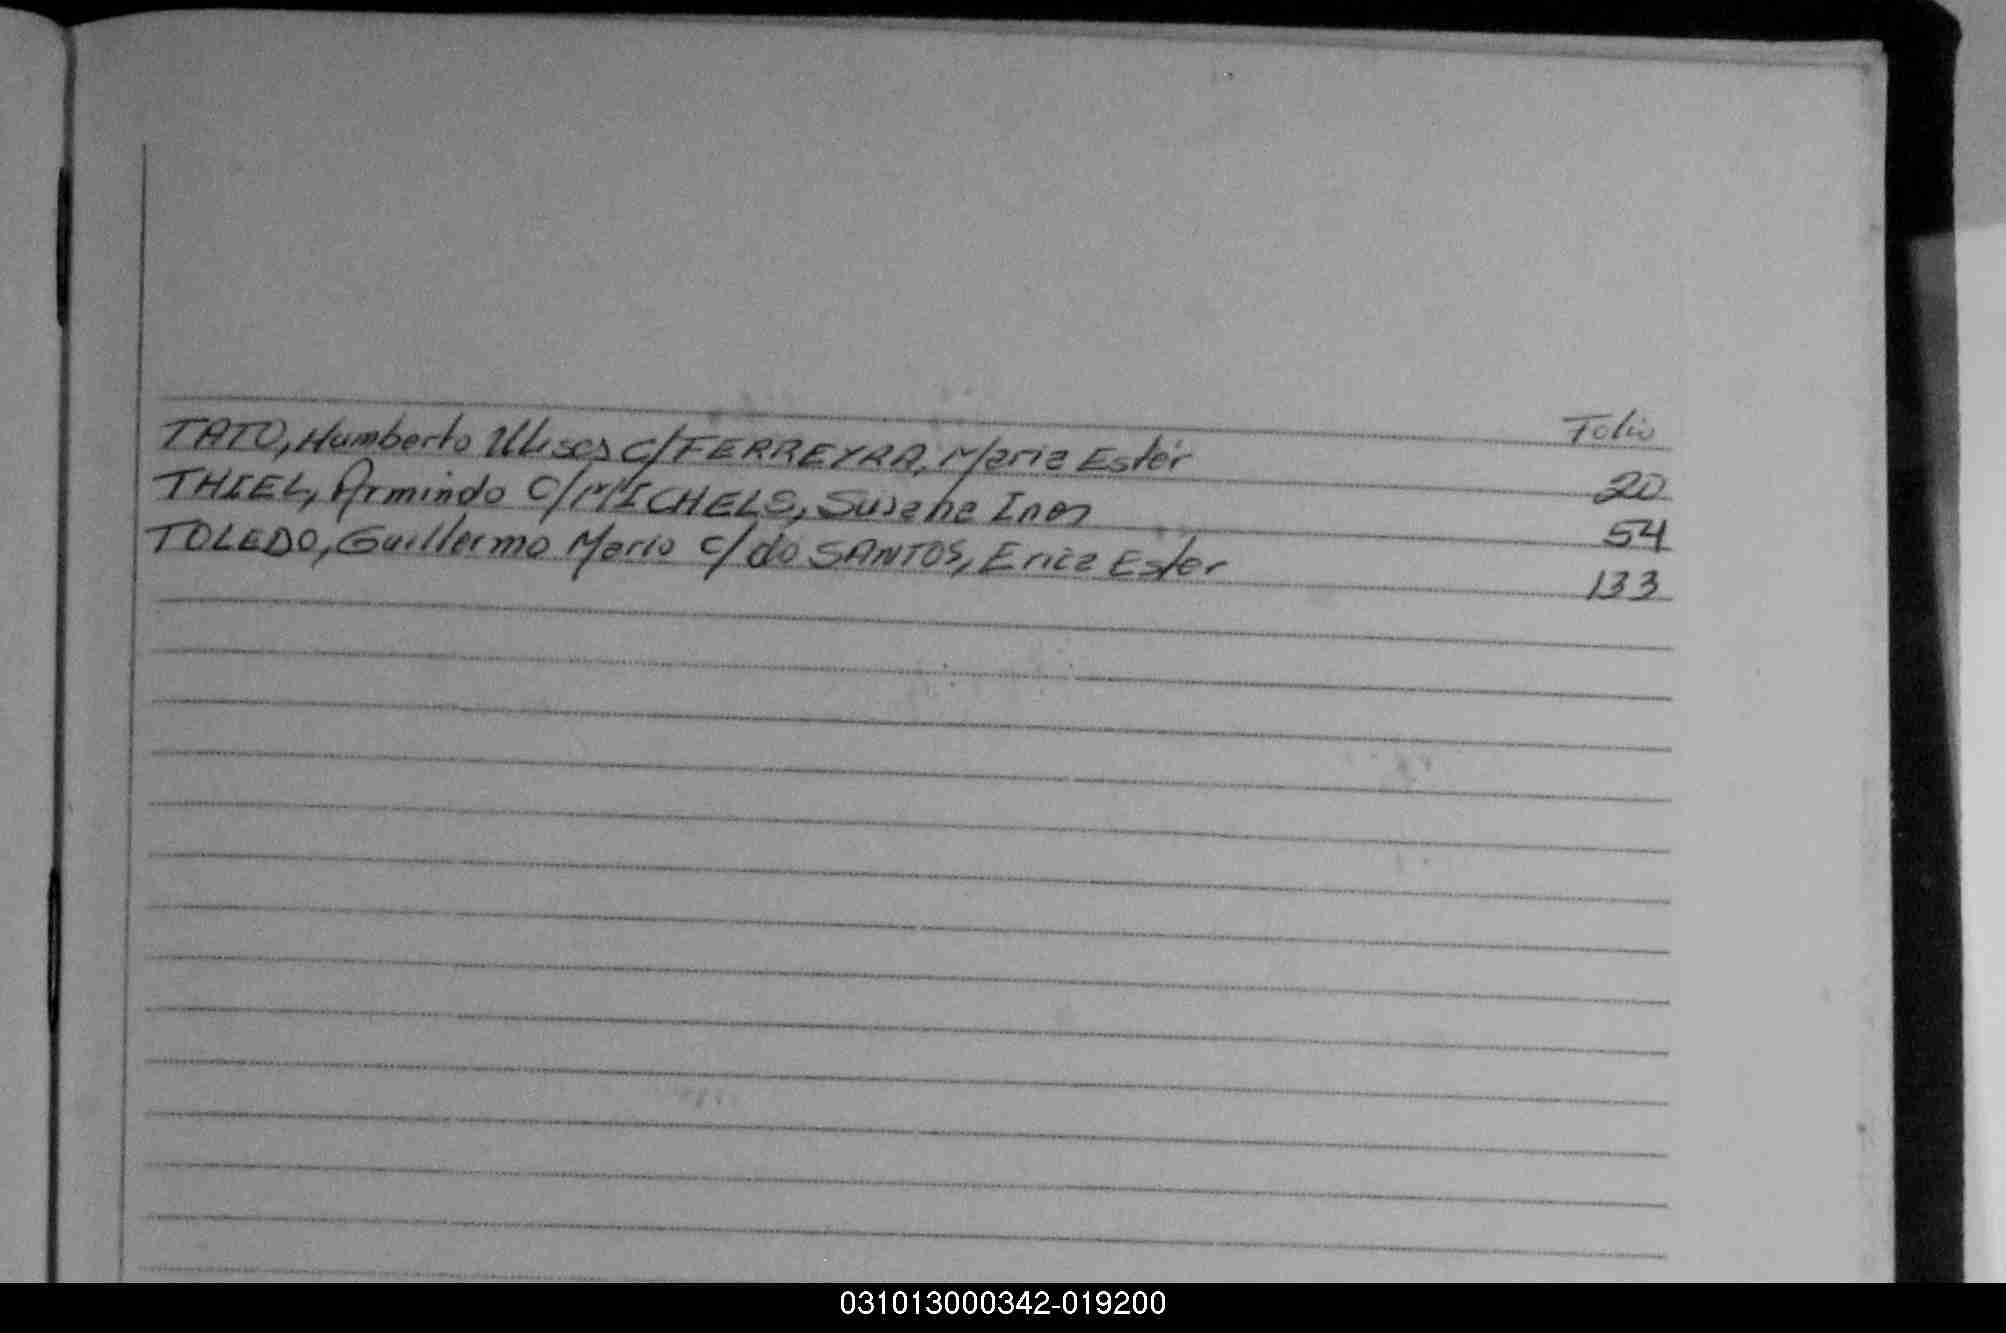 Folio
TATO, Humberto Ulises c/FERREYRA, Maria Ester 20
THIEL, Armindo c/MICHELS, Susana Ines 54
TOLEDO, Guillermo Mario c/ do SANTOS, Erica Ester 133
031013000342-019200